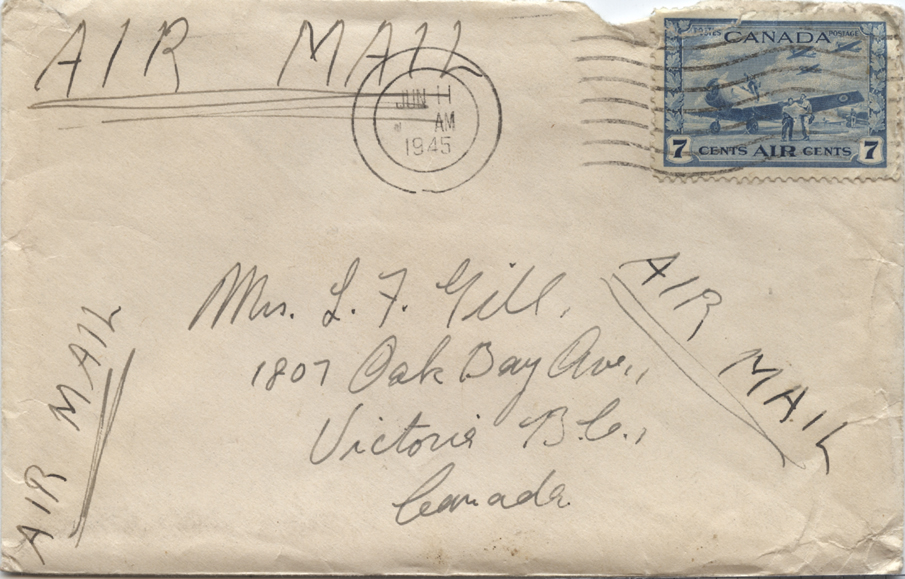 AIR MAIL
JUN 11
AM
1945
CANADA
POSTES POSTAGE
7 CENTS AIR CENTS 7
Mrs. L. F. Gill,
1807 Oak Bay Ave.,
Victoria B.C.,
Canada
AIR MAIL
AIR MAIL